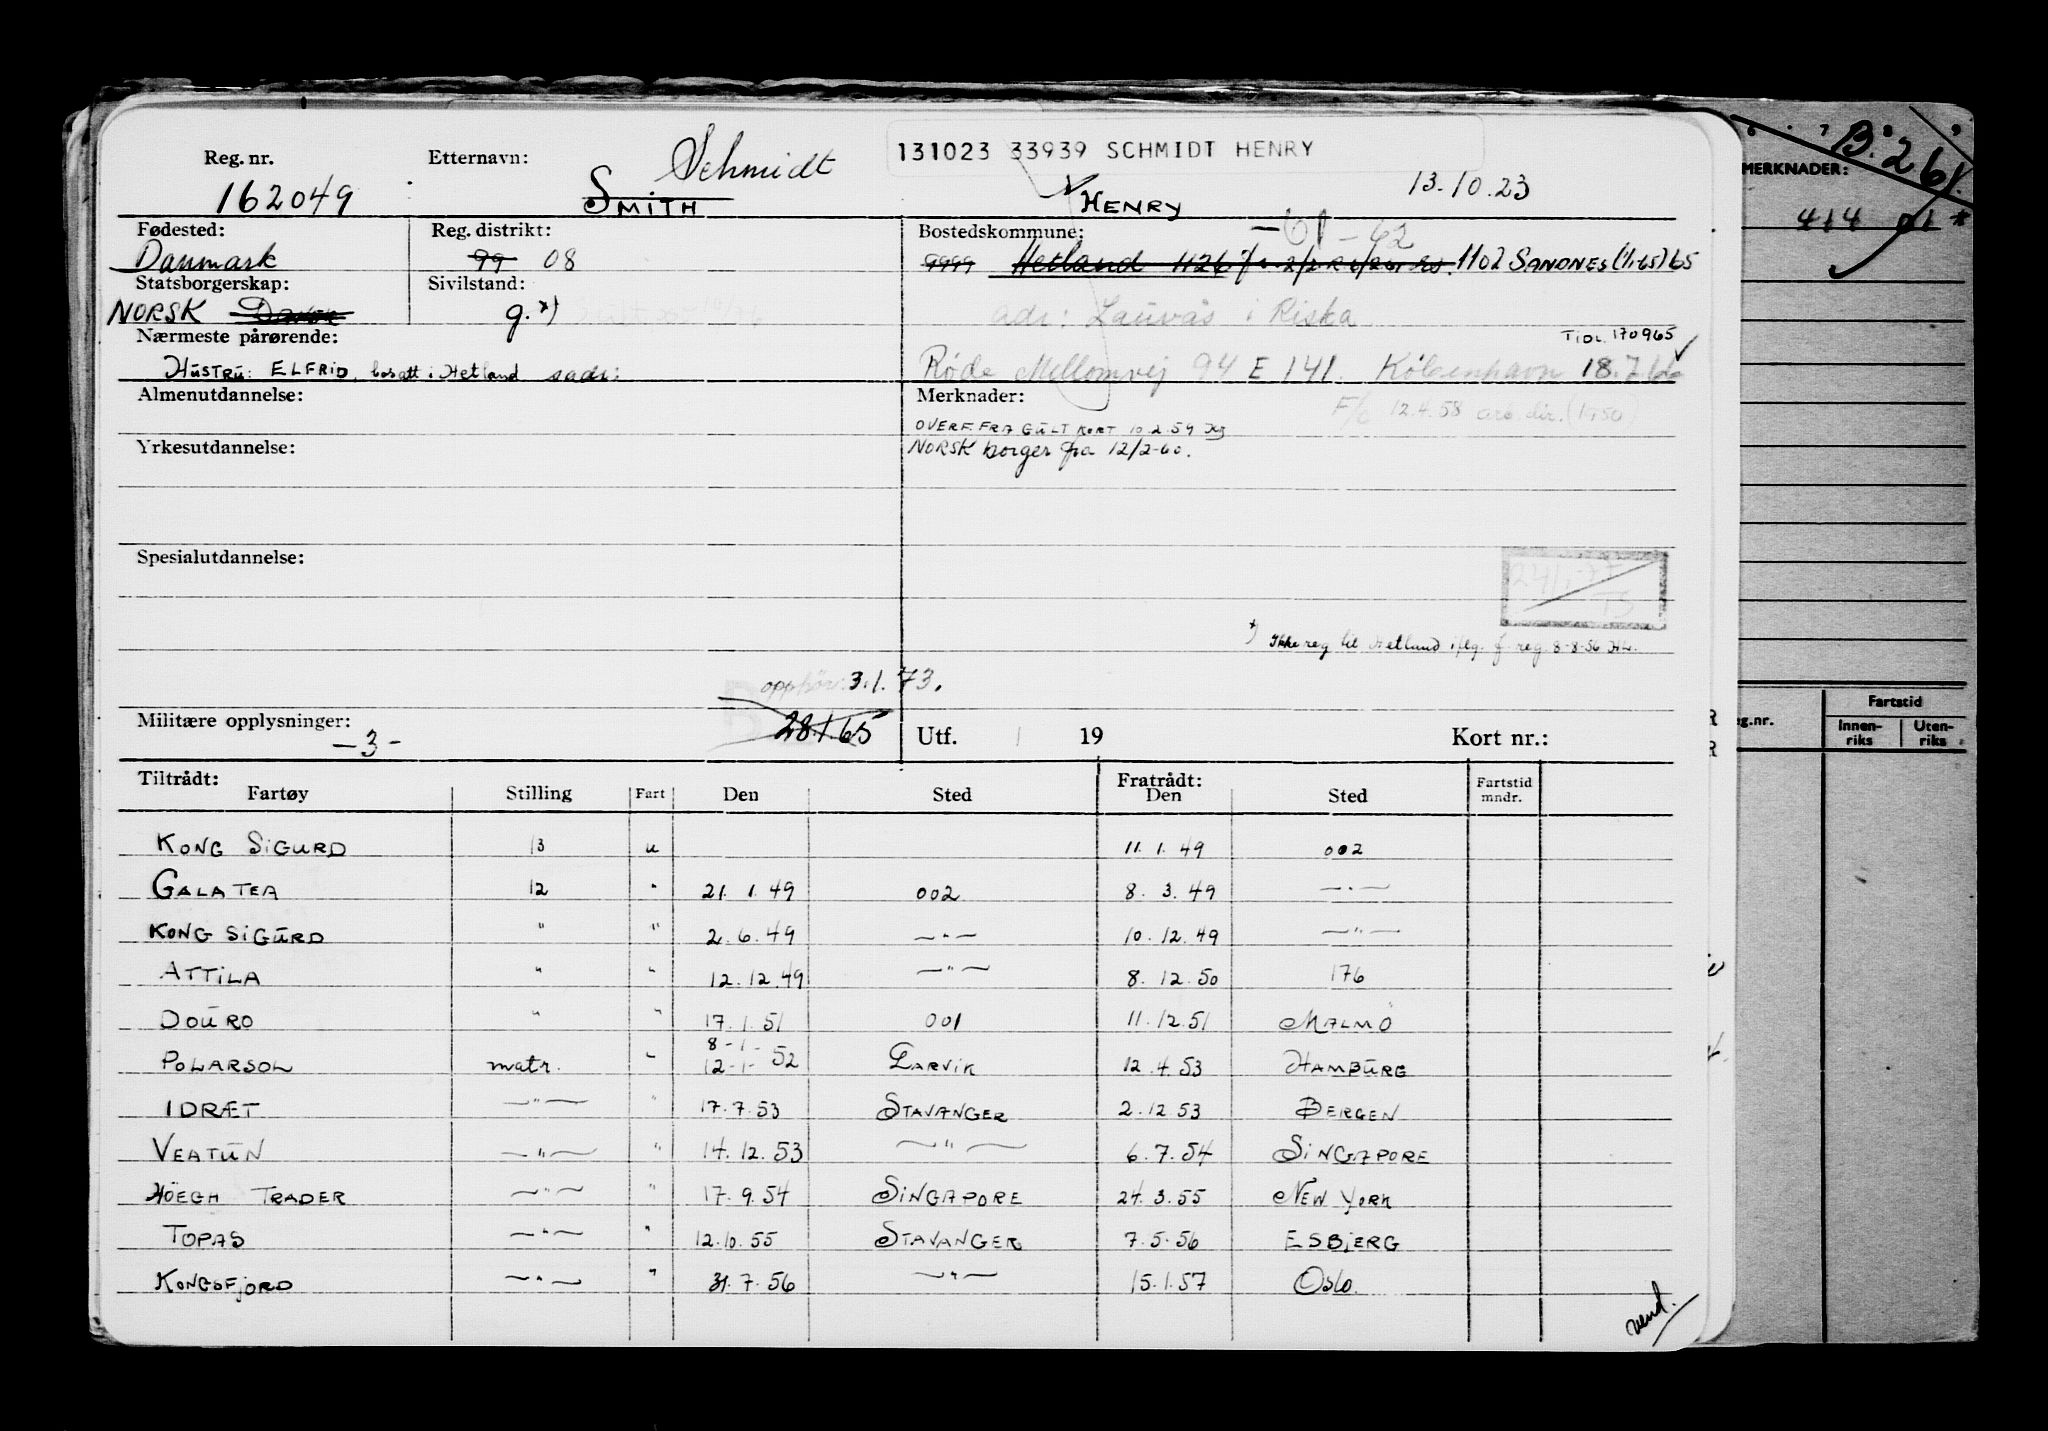 131023 33939 SCHMIDT HENRY
Reg. nr. Etternavn: Schmidt
162049 SMITH HENRY 13.10.23
Fødested: Reg. distrikt: Bostedskommune: 61-62
Danmark 99 08 9999 Hetland 1126 1102 SANDNES (1/1-65) 65
Statsborgerskap: Sivilstand: adr: Lauvås i Riska
NORSK Dansk g. *)
Nærmeste pårørende: TIDL 170965
HUSTRU: ELFRID, bosatt i Hetland sadr: Røde Mellomvej 94 E 141. København 18.7.62
Almenutdannelse: Merknader: F/o 12.4.58 arb. dir. (1-150)
OVERF. FRA GULT KORT 10.2.59
Yrkesutdannelse: NORSK borger fra 12/2-60.
Spesialutdannelse:
*) Ikke reg til Hetland iflg. f. reg. 8-8-56 HL.
opphør: 3.1.73.
Militære opplysninger: 28.1.65 Utf. 19 Kort nr.:
-3-
Tiltrådt: Fratrådt:
Fartøy Stilling Fart Den Sted Den Sted Fartstid mndr.
KONG SIGURD 13 u 11. 1. 49 002
GALATEA 12 " 21. 1. 49 002 8. 3. 49 —"—
KONG SIGURD " " 2. 6. 49 —"— 10. 12. 49 —"—
ATTILA " " 12. 12. 49 —"— 8. 12. 50 176
DOURO " " 17. 1. 51 001 11. 12. 51 MALMÖ
8-1-
POLARSOL matr. " 12-1- 52 Larvik 12. 4. 53 HAMBURG
IDRÆT —"— " 17. 7. 53 STAVANGER 2. 12 53 BERGEN
VEATUN —"— " 14. 12. 53 —"— 6. 7. 54 SINGAPORE
HÖEGH TRADER —"— " 17. 9. 54 SINGAPORE 24. 3. 55 NEW YORK
TOPAS —"— " 12. 10. 55 STAVANGER 7. 5. 56 ESBJERG
KONGSFJORD —"— " 31. 7. 56 —"— 15. 1. 57 Oslo.
vend.
B. 261.
MERKNADER:
414 01 *
Fartstid
g.nr. Innen-riks Uten-riks